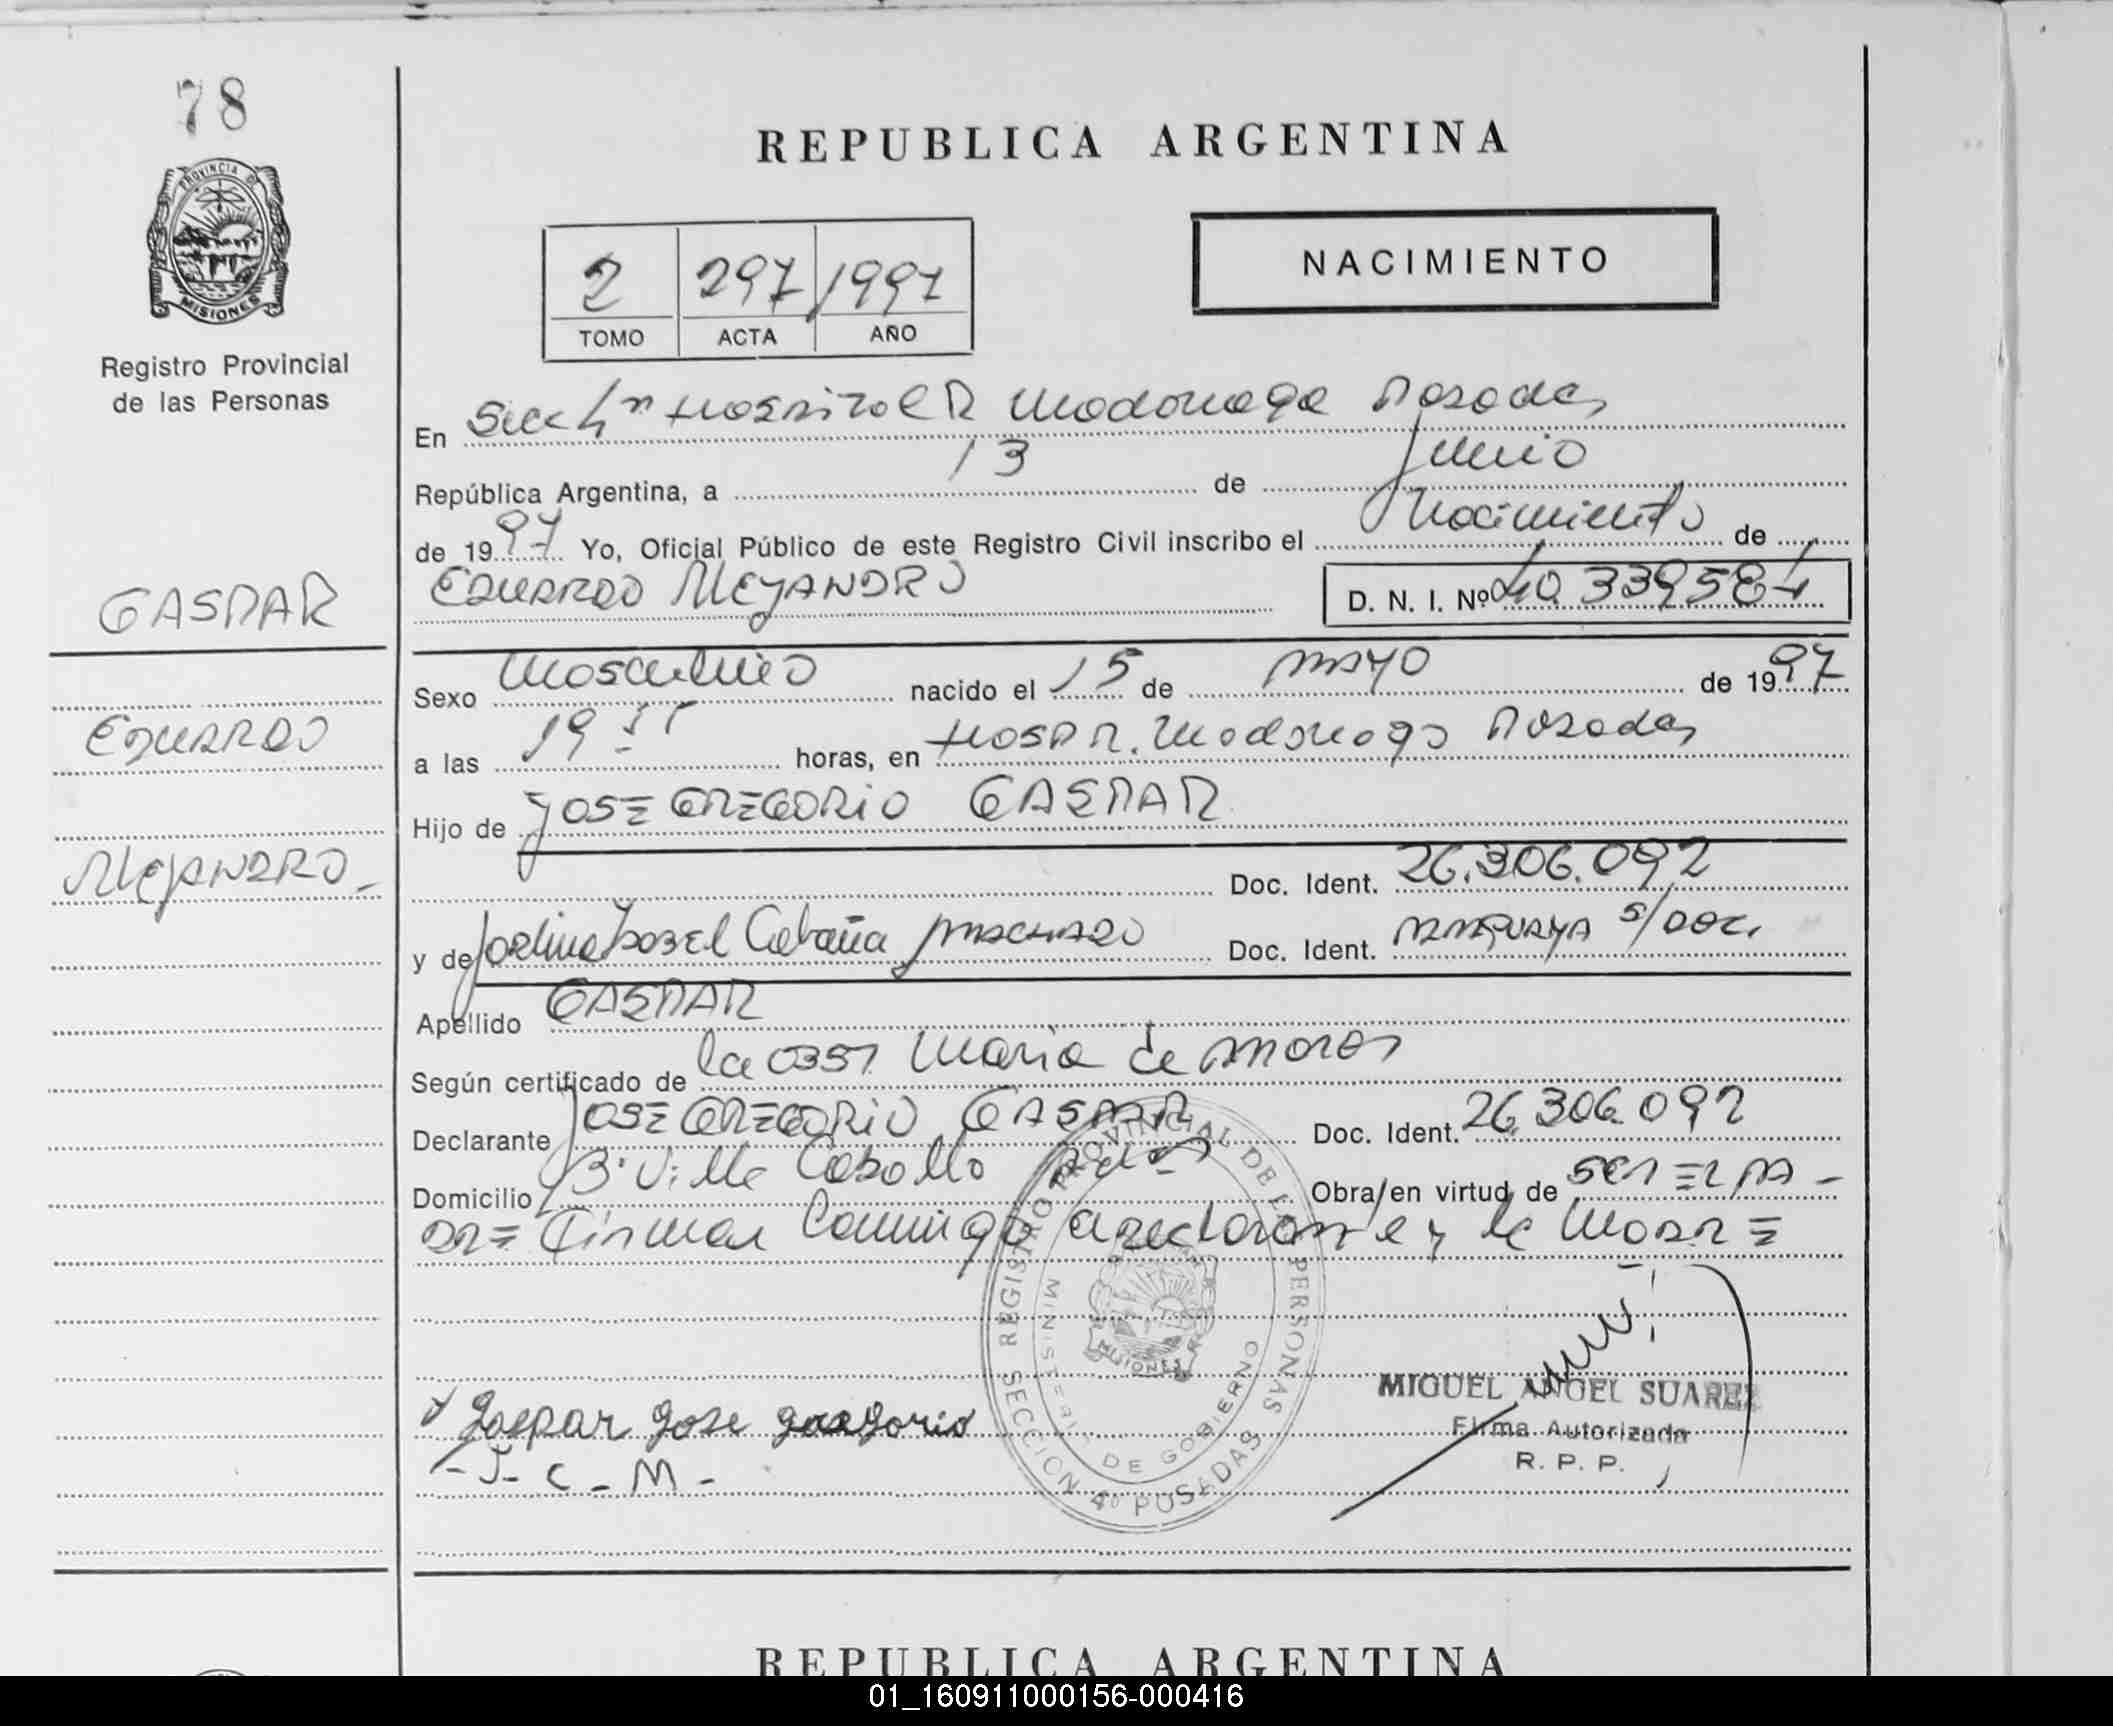 78
PROVINCIA DE
MISIONES
Registro Provincial
de las Personas
GASPAR
EDUARDO
ALEJANDRO -
REPUBLICA ARGENTINA
NACIMIENTO
2 297 / 1997
TOMO ACTA AÑO
En Secc 4ª Hospital R Madariaga Posadas
República Argentina, a 13 de Junio
de 1997 Yo, Oficial Público de este Registro Civil inscribo el Nacimiento de
EDUARDO ALEJANDRO D. N. I. Nº 40.339584
Sexo Masculino nacido el 15 de MAYO de 1997
a las 19 horas, en Hosp R. Madariaga Posadas
Hijo de JOSE GREGORIO GASPAR
Doc. Ident. 26.306.092
y de Isabel Cabaña MACHADO Doc. Ident. PARAGUAYA S/DOC.
Apellido GASPAR
Según certificado de la OBST. Maria de
Declarante JOSE GREGORIO GASPAR Doc. Ident. 26.306.092
Domicilio Bº Ville Cabello Pdas Obra/en virtud de SER EL PA-
DRE Firman Conmigo declarante y la MADRE
Gaspar Jose
- J- C - M -
REGISTRO PROVINCIAL DE LAS PERSONAS
SECCION 4º POSADAS
MINISTERIO DE GOBIERNO
MISIONES
MIGUEL ANGEL SUAREZ
Firma Autorizada
R. P. P.
REPUBLICA ARGENTINA
01_160911000156-000416